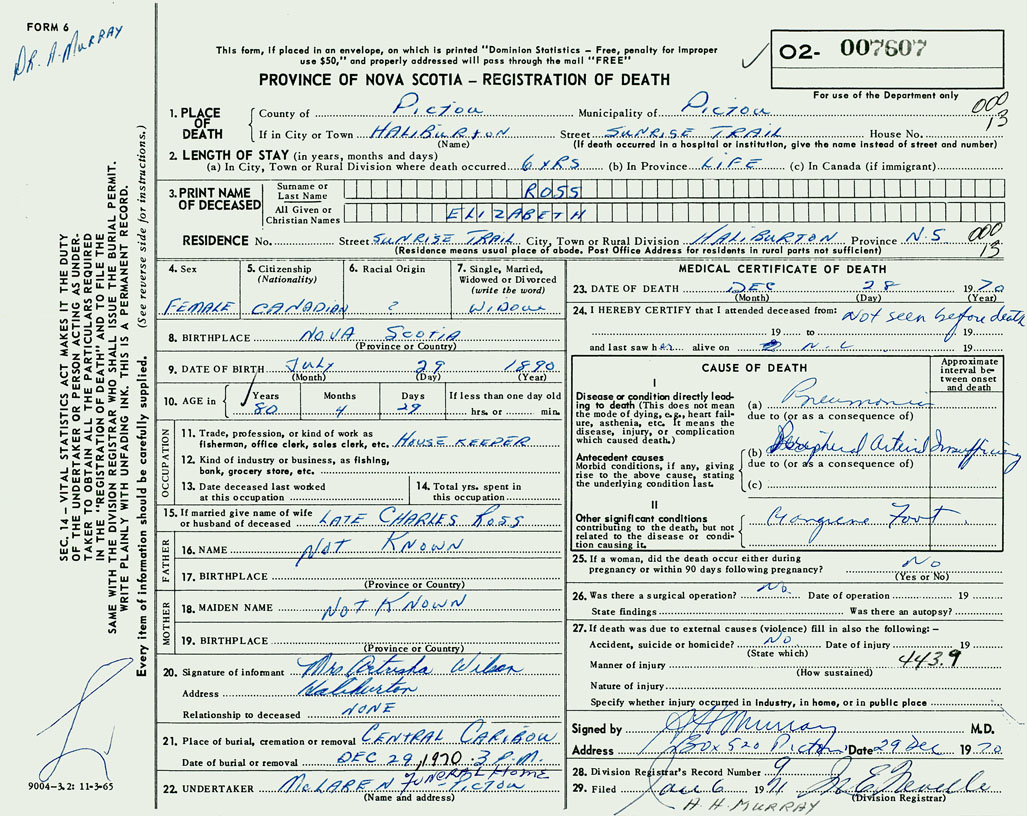 FORM 6
DR. A. MURRAY
This form, if placed in an envelope, on which is printed "Dominion Statistics – Free, penalty for improper
use $50," and properly addressed will pass through the mail "FREE"
PROVINCE OF NOVA SCOTIA – REGISTRATION OF DEATH
O2- 007607
For use of the Department only
SEC. 14 – VITAL STATISTICS ACT MAKES IT THE DUTY
OF THE UNDERTAKER OR PERSON ACTING AS UNDER-
TAKER TO OBTAIN ALL THE PARTICULARS REQUIRED
IN THE "REGISTRATION OF DEATH" AND TO FILE THE
SAME WITH THE DIVISION REGISTRAR WHO SHALL ISSUE THE BURIAL PERMIT.
WRITE PLAINLY WITH UNFADING INK. THIS IS A PERMANENT RECORD.
Every item of information should be carefully supplied. (See reverse side for instructions.)
1. PLACE OF DEATH
County of PICTOU Municipality of PICTOU 000 13
If in City or Town HALIBURTON Street SUNRISE TRAIL House No.
(Name) (If death occurred in a hospital or institution, give the name instead of street and number)
2. LENGTH OF STAY (in years, months and days)
(a) In City, Town or Rural Division where death occurred 6 YRS (b) In Province LIFE (c) In Canada (if immigrant)
3. PRINT NAME OF DECEASED
Surname or Last Name ROSS
All Given or Christian Names ELIZABETH
RESIDENCE No. Street SUNRISE TRAIL City, Town or Rural Division HALIBURTON Province N.S 000 13
(Residence means usual place of abode. Post Office Address for residents in rural parts not sufficient)
4. Sex FEMALE
5. Citizenship (Nationality) CANADIAN
6. Racial Origin ?
7. Single, Married, Widowed or Divorced (write the word) WIDOW
8. BIRTHPLACE NOVA SCOTIA
(Province or Country)
9. DATE OF BIRTH July 29 1890
(Month) (Day) (Year)
10. AGE in Years 80 Months 4 Days 29 If less than one day old hrs. or min.
OCCUPATION
11. Trade, profession, or kind of work as
fisherman, office clerk, sales clerk, etc. HOUSE KEEPER
12. Kind of industry or business, as fishing,
bank, grocery store, etc.
13. Date deceased last worked
at this occupation
14. Total yrs. spent in
this occupation
15. If married give name of wife
or husband of deceased LATE CHARLES ROSS
FATHER
16. NAME NOT KNOWN
17. BIRTHPLACE
(Province or Country)
MOTHER
18. MAIDEN NAME NOT KNOWN
19. BIRTHPLACE
(Province or Country)
20. Signature of informant Mrs Wilson
Address Haliburton
Relationship to deceased NONE
21. Place of burial, cremation or removal CENTRAL CARIBOU
Date of burial or removal DEC 29, 1970 3 P.M.
22. UNDERTAKER McLAREN FUNERAL HOME PICTOU
(Name and address)
9004-3.2: 11-3-65
MEDICAL CERTIFICATE OF DEATH
23. DATE OF DEATH DEC 28 1970
(Month) (Day) (Year)
24. I HEREBY CERTIFY that I attended deceased from: Not seen before death
19 to 19
and last saw her alive on 19
CAUSE OF DEATH
Approximate interval be-tween onset and death
I
Disease or condition directly lead-
ing to death (This does not mean
the mode of dying, e.g., heart fail-
ure, asthenia, etc. It means the
disease, injury, or complication
which caused death.)
(a) Pneumonia
due to (or as a consequence of)
Antecedent causes
Morbid conditions, if any, giving
rise to the above cause, stating
the underlying condition last.
(b) Peripheral Arterial Insufficiency
due to (or as a consequence of)
(c)
II
Other significant conditions
contributing to the death, but not
related to the disease or condi-
tion causing it.
Gangrene Foot
25. If a woman, did the death occur either during
pregnancy or within 90 days following pregnancy? No
(Yes or No)
26. Was there a surgical operation? No. Date of operation 19
State findings Was there an autopsy?
27. If death was due to external causes (violence) fill in also the following: –
Accident, suicide or homicide? No Date of injury 19
(State which)
443.9
Manner of injury
(How sustained)
Nature of injury
Specify whether injury occurred in industry, in home, or in public place
Signed by Murray M.D.
Address Box 520 Pictou Date 29 Dec 1970
28. Division Registrar's Record Number 9
29. Filed Jan 6 1971
(Division Registrar)
H. H. MURRAY